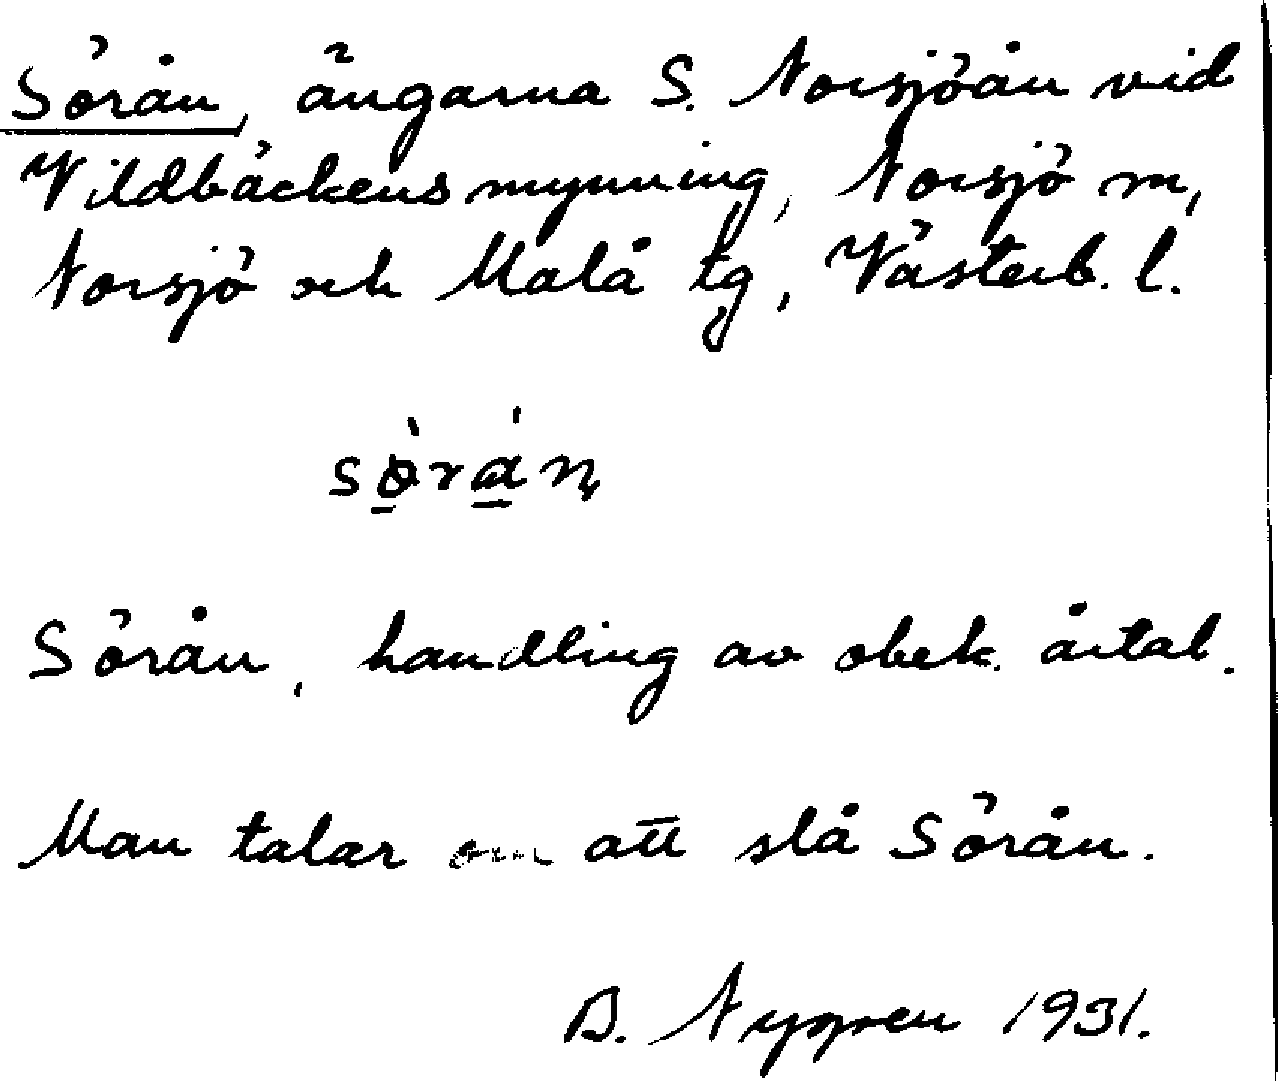 Sörån, ängarna S. Norsjöån vid
Vildbäckens mynning, Norsjö sn,
Norsjö och Malå tg, Västerb. l.
Sörån, handling av obek. årtal.
Man talar om att slå Sörån.
B. Nygren 1931.